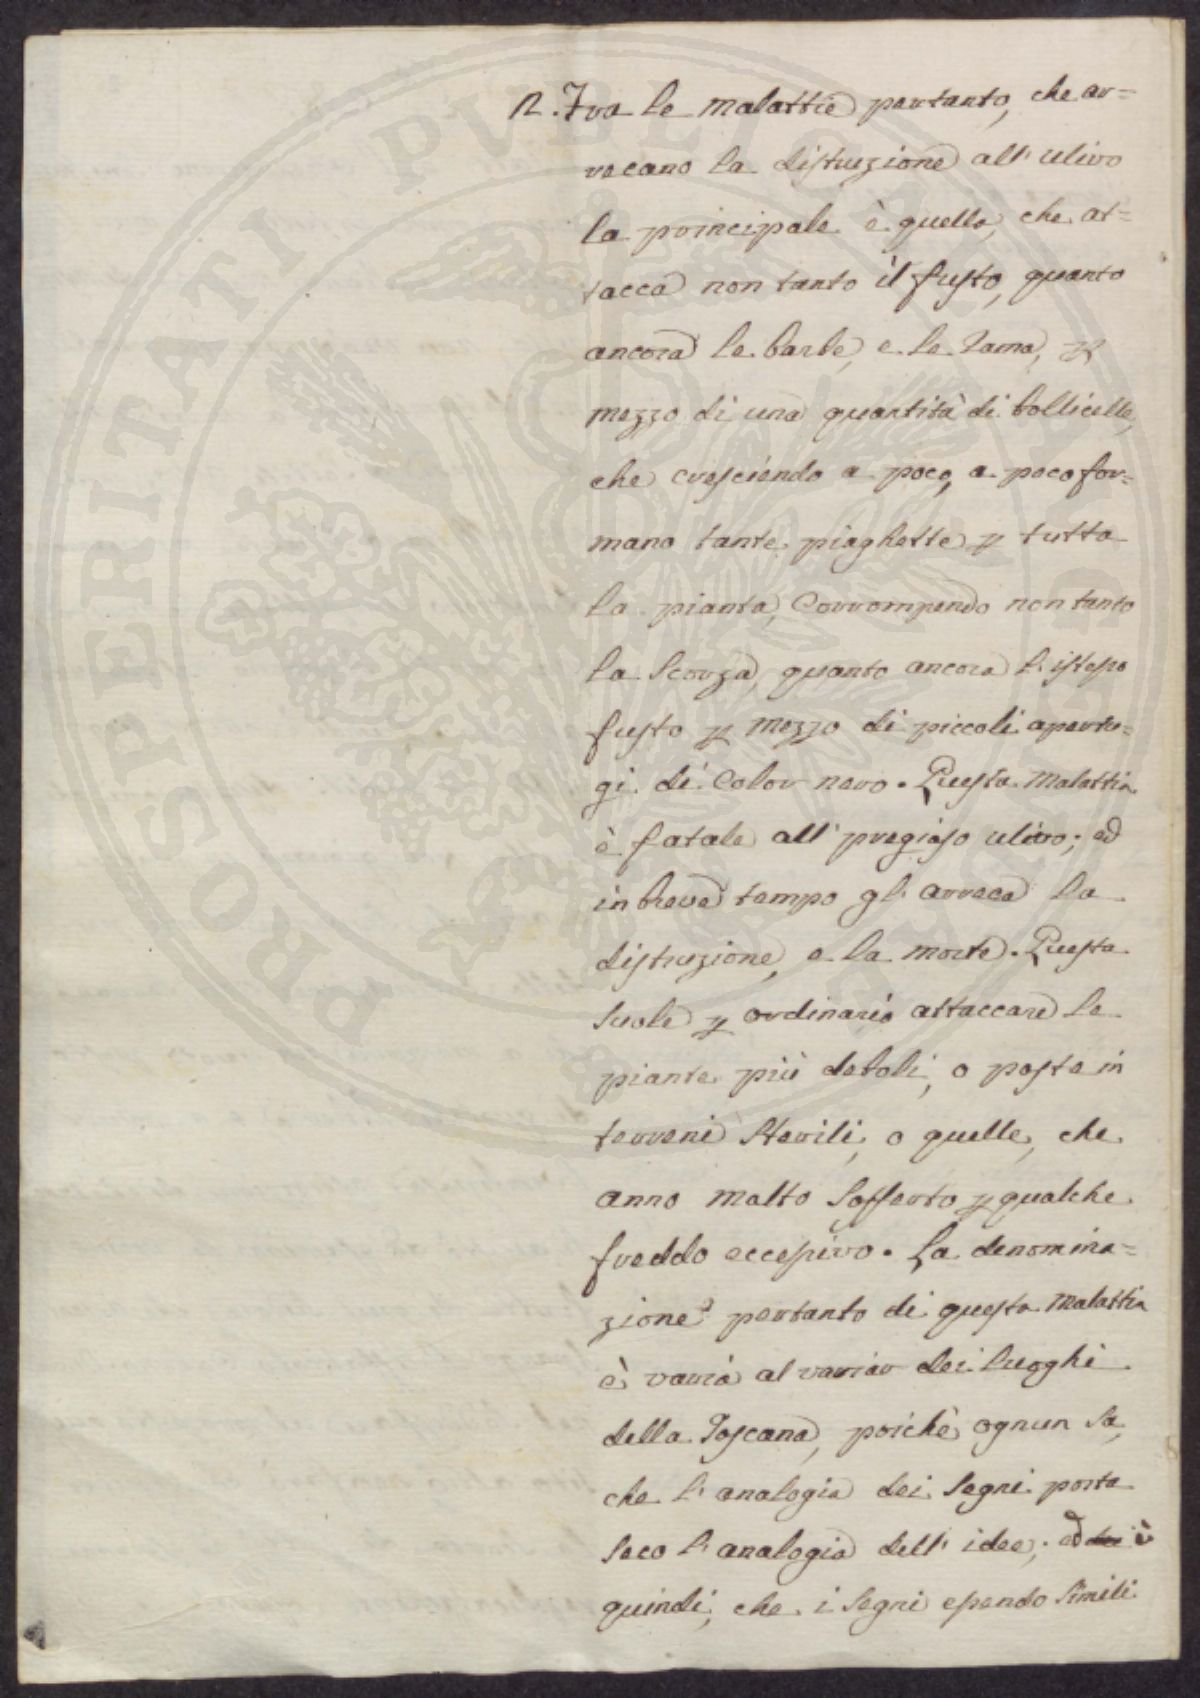 2. Tra le malattie pertanto, che ar=
recano la distruzione all'ulivo
la principale è quella, che at=
tacca non tanto il fusto, quanto
ancora le barbe, e le rama, p
mezzo di una quantità di bollicelle,
che cresciendo a poco, a poco for=
mano tante piaghette p tutta
la pianta, Corrompendo non tanto
la Scorza, quanto ancora l'istesso
fusto p mezzo di piccoli apertu=
gi di Color nero. Questa Malattia
è fatale all'pregiaso ulivo; ed
in breve tempo gl'arreca la
distruzione, e la morte. Questa
Suole p ordinario attaccare le
piante più deboli, o poste in
terreni Sterili, o quelle, che
anno molto Sofferto p qualche
freddo eccessivo. La denomina=
zione pertanto di questa Malattia
è varia al variar dei luoghi
della Toscana, poichè ognun Sa,
che l'analogia dei Segni porta
Seco l'analogia dell'idee; ed è
quindi, che i Segni essendo Simili
PROSPERITATI PUBLICAE AUGENDAE